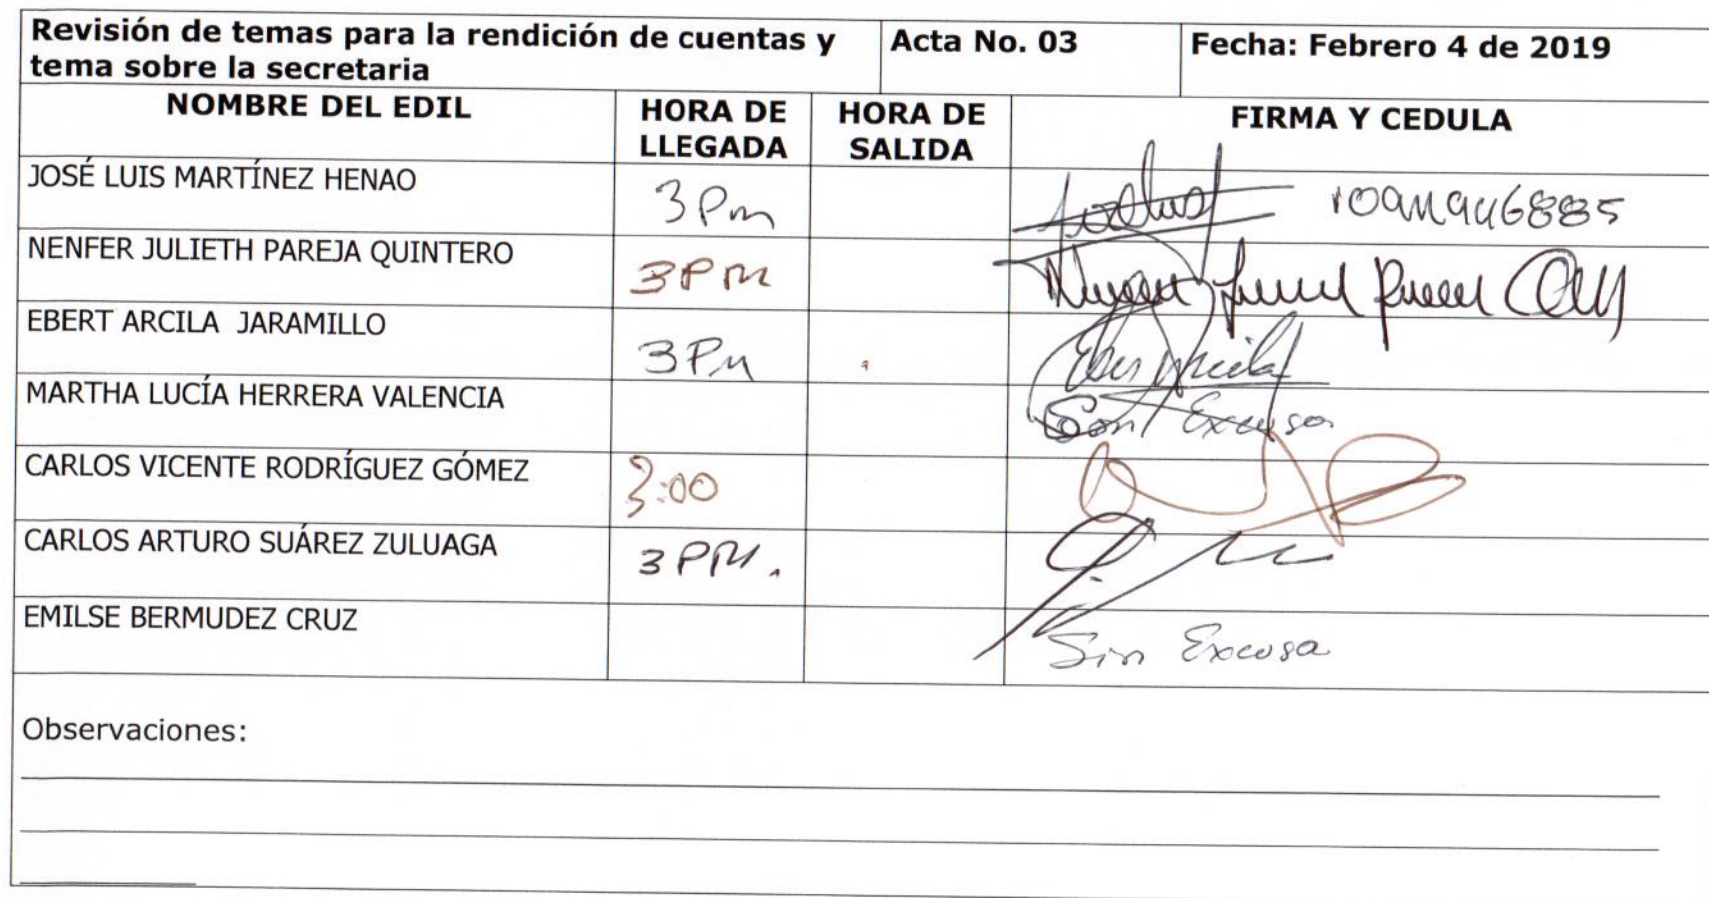 Revisión de temas para la rendición de cuentas y tema sobre la secretaria Acta No. 03 Fecha: Febrero 4 de 2019
NOMBRE DEL EDIL HORA DE LLEGADA HORA DE SALIDA FIRMA Y CEDULA
JOSÉ LUIS MARTÍNEZ HENAO 3 Pm
NENFER JULIETH PAREJA QUINTERO 3 PM
EBERT ARCILA JARAMILLO 3 PM
MARTHA LUCÍA HERRERA VALENCIA Con Excusa
CARLOS VICENTE RODRÍGUEZ GÓMEZ 3:00
CARLOS ARTURO SUÁREZ ZULUAGA 3 PM.
EMILSE BERMUDEZ CRUZ Sin Excusa
Observaciones: